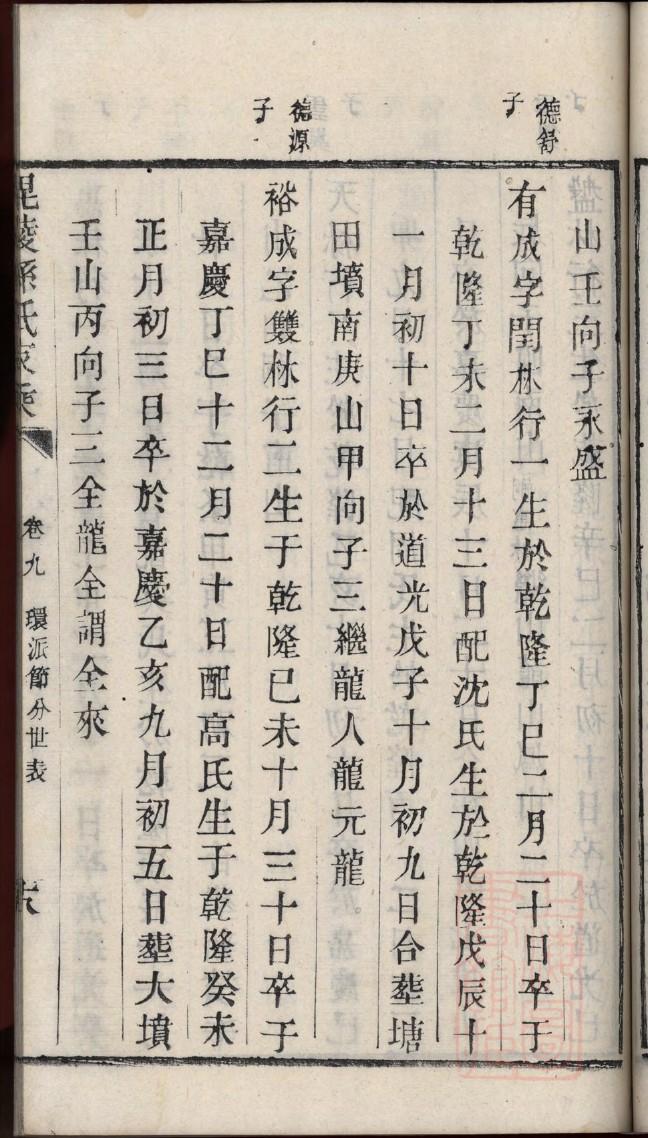 山壬向子永盛
德舒
子
有成字閏林行一生於乾隆丁巳二月二十日卒于
乾隆丁未二月十三日配沈氏生於乾隆戊辰十
一月初十日卒於道光戊子十月初九日合塟塘
田墳南庚山甲向子三繼龍人龍元龍
德源
子
裕成字雙林行二生于乾隆己未十月三十日卒于
嘉慶丁巳十二月二十日配高氏生于乾隆癸未
正月初三日卒於嘉慶乙亥九月初五日塟大墳
壬山丙向子三全龍全謂全來
毘陵孫氏家乘
卷九 環派節分世表